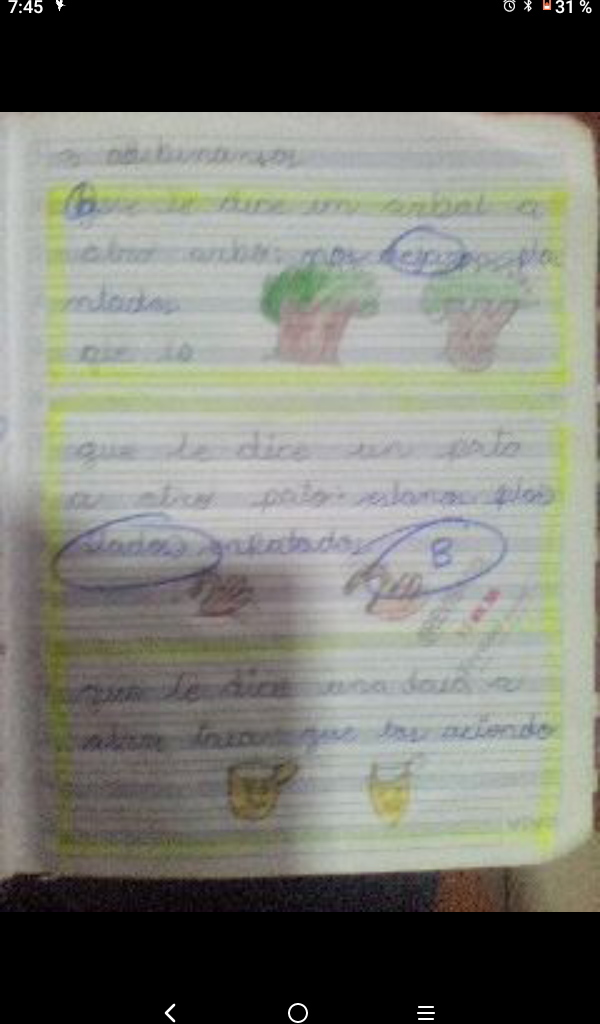 7:45
31 %
que le dice un arbol a
otro arbol: nos dejaron pla
ntados
que le
que le dice un pato
a otro pato: estamos
empatados
B
que le dice una taza a
otra taza: que tas aciendo